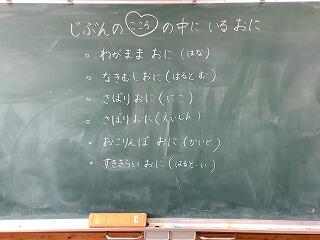 じぶんの こころ の中に いる おに
。わがまま おに (はな)
。なきむし おに (はると・む)
。さぼり おに (にこ)
。さぼり おに (えいしん)
。おこりんぼ おに (かいと)
。すききらい おに (はると・い)